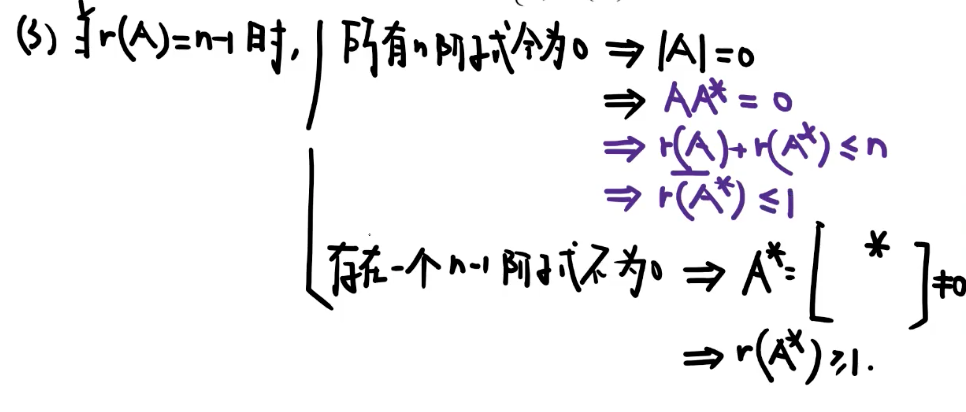 (3) 当r(A)=n-1时, 所有n阶子式全为0 ⇒ |A|=0
⇒ AA*=0
⇒ r(A)+r(A*)≤n
⇒ r(A*)≤1
存在一个n-1阶子式不为0 ⇒ A*=[ * ]≠0
⇒ r(A*)≥1.